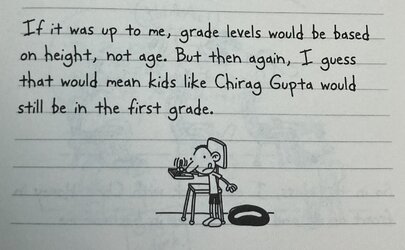 If it was up to me, grade levels would be based
on height, not age. But then again, I guess
that would mean kids like Chirag Gupta would
still be in the first grade.